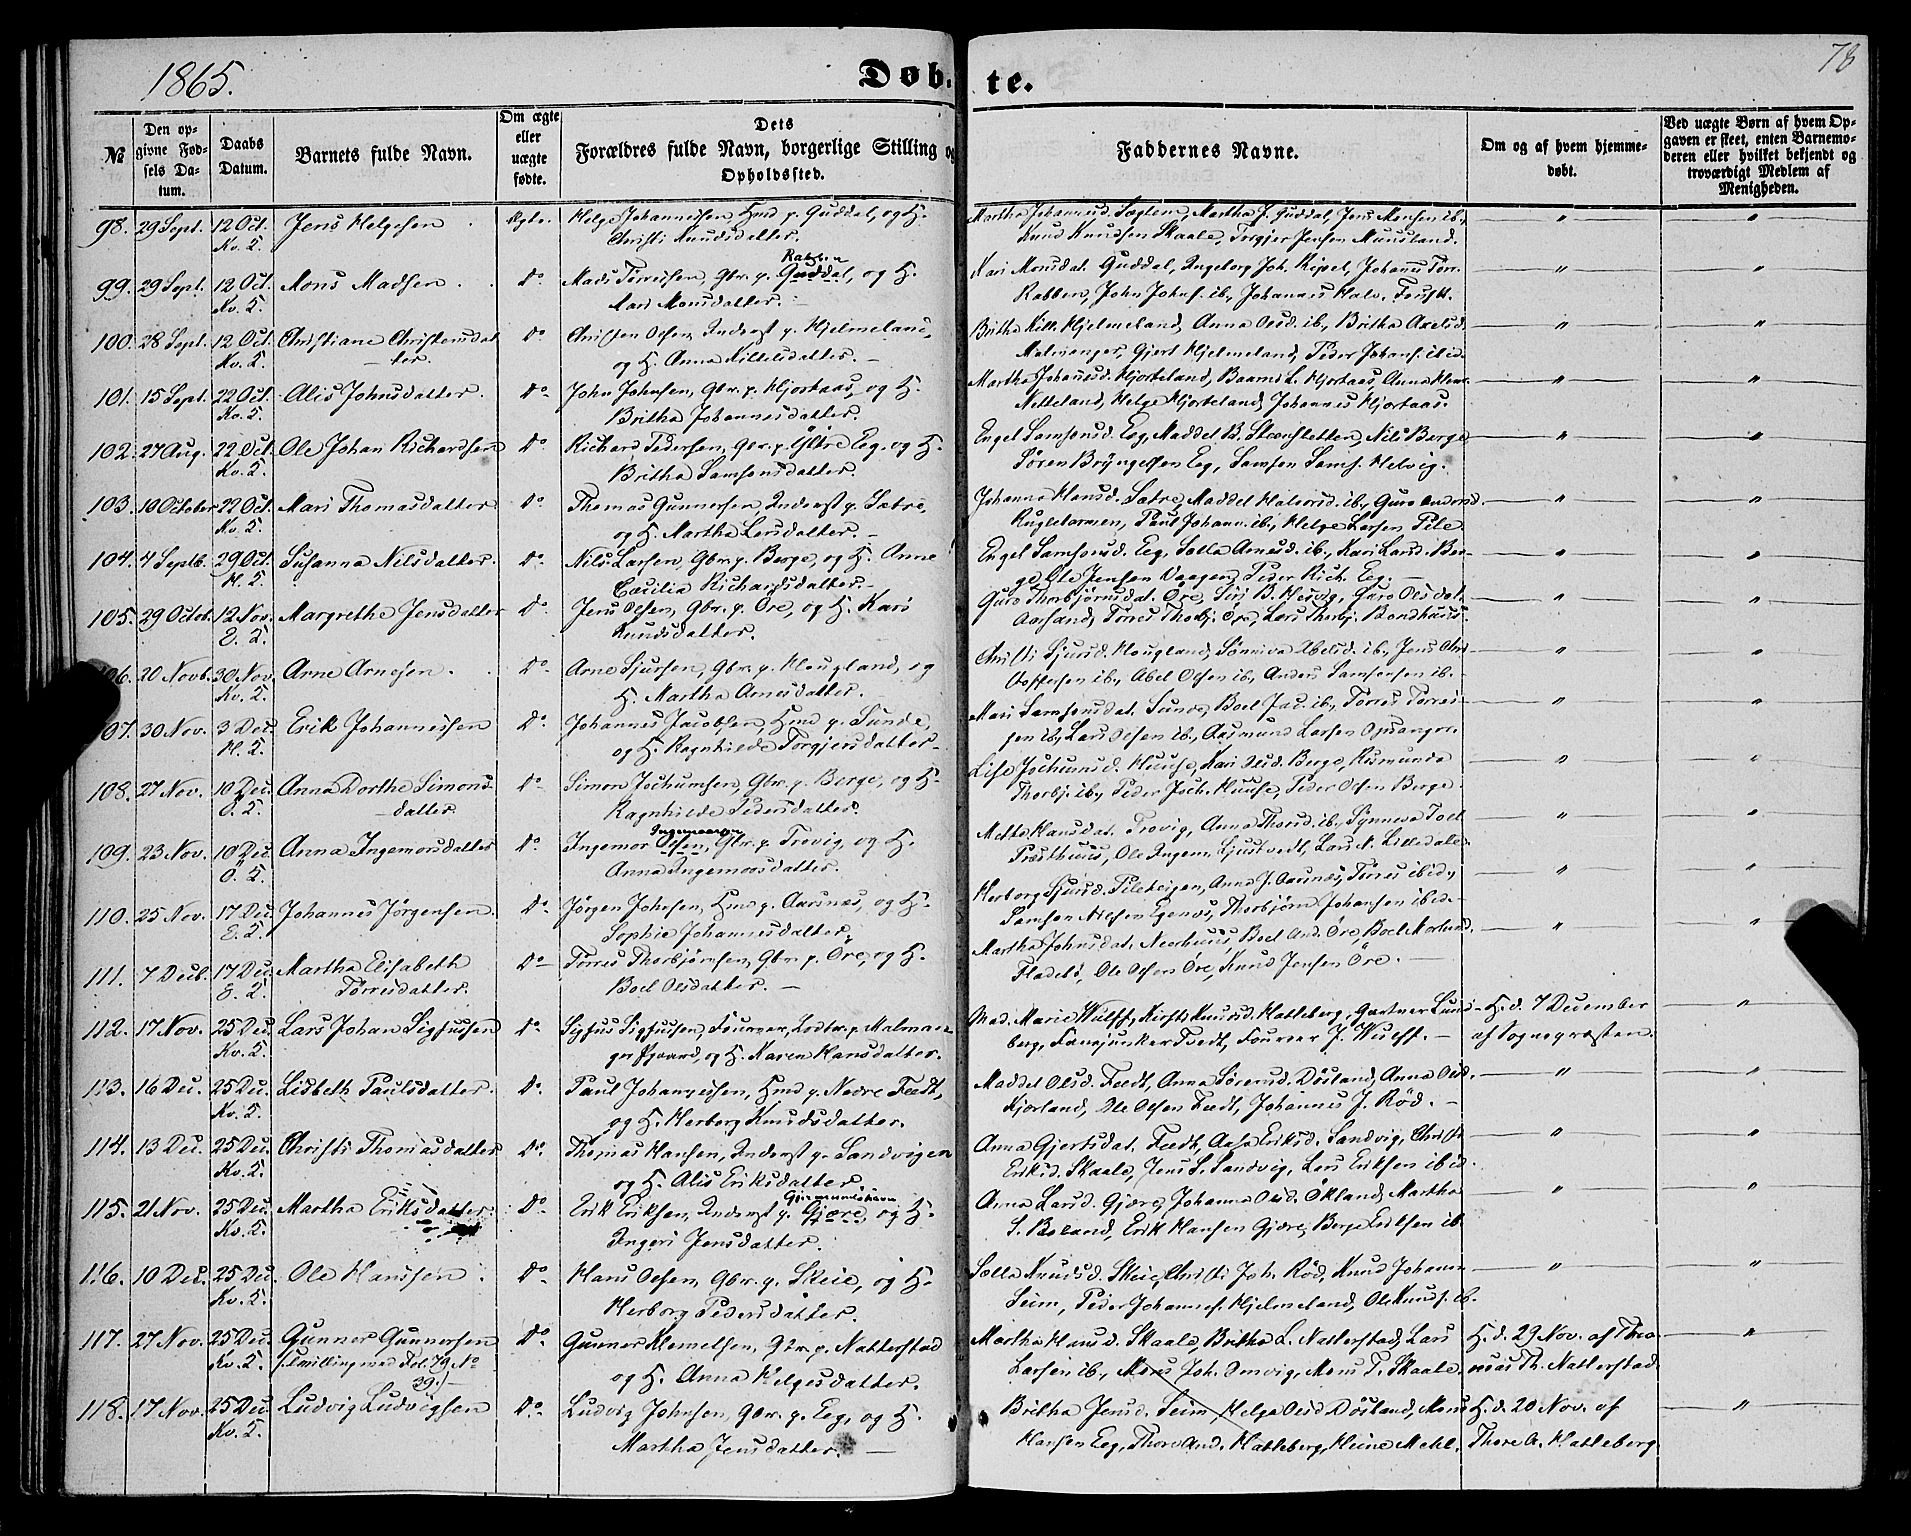 1865.
Døb-te.
78
№
Den opgivne Fødsels Datum.
Daabs Datum.
Barnets fulde Navn.
Om ægte eller uægte fødte.
Dets Forældres fulde Navn, borgerlige Stilling og Opholdssted.
Faddernes Navne.
Om og af hvem hjemmedøbt.
Ved uægte Børn af hvem Opgaven er skeet, enten Barnemoderen eller hvilket bekjendt og troværdigt Medlem af Menigheden.
98. 29 Sept. 12 Oct. Jens Helgesen Ægte. Helge Johannessen, Hmd p. Guddal, og H. Martha Johannesd. Sæglem, Martha J. Guddal, Jens Monsen ib., " "
Kv. S. Christi Knudsdatter. Knud Knudsen Skaale, Torgjer Jensen Muusland.
Rabben
99. 29 Sept. 12 Oct. Mons Madsen Do Mads Tørresen, Gbr. p. Guddal, og H. Kari Monsdat. Guddal, Ingeborg Joh. " "
Kv. S. Mari Monsdatter. Rabben, John Johns. ib., Johannes Halv.
100. 28 Sept. 12 Oct. Christiane Christensdat- Do Christen Olsen, Inderst p. Hjelmeland, Britha Kitt. Hjelmeland, Anna Olsd. ib., Britha Axelsd. " "
Kv. S. ter. og H. Anna Kittelsdatter. Malmanger, Gjert Hjelmeland, Peder Johans. ibid.
101. 15 Sept. 22 Oct. Alis Johnsdatter. Do John Johnsen, Gbr. p. Hjortaas, og H. Martha Johannesd. Hjorteland, L. Hjortaas, Anna " "
Kv. S. Britha Johannesdatter. Netteland, Helge Hjorteland, Johannes Hjortaas.
102. 27 Aug. 22 Oct. Ole Johan Richardsen Do Richard Pedersen, Gbr. p. Ytre Eeg, og H. Engel Samsonsd. Eeg, Maddel B. Nils Berge " "
Kv. S. Britha Samsonsdatter. Sören Bryngelsen Eeg, Samson Sams. Helvig.
103. 10 October 22 Oct. Mari Thomasdatter Do Thomas Gunnersen, Inderst p. Sætre, Johanna Hansd. Sætre, Maddel Halvorsd. ib., Guro Andersd. " "
Kv. S. og H. Martha Larsdatter. Paul Johann. ib., Helge Larsen Pile
104. 4 Septb. 29 Oct. Susanna Nilsdatter. Do Nils Larsen, Gbr. p. Berge, og H. Anne Engel Samsonsd. Eeg, Selle Arnesd. ib., Kari Larsd. Ber- " "
H. S. Cæcilia Richardsdatter. ge, Ole Jensen Vaagen, Peder Rich. Eeg.
105. 29 Octob. 12 Nov. Margrethe Jensdatter Do Jens Olsen, Gbr. p. Öre, og H. Kari Guro Thorbjørnsdat. Öre, Siri B. Helvig, Guro Olsdat. " "
E. S. Knudsdatter. Aarsand, Tørres Thorbj. Öre, Lars Thorbj. Bondhuus.
106. 20 Novb. 30 Nov. Arne Arnesen. Do Arne Sjursen, Gbr. p. Hougland, og Christi Sjursd. Hougland, Sønneva Abelsd. ib., Jens Chri- " "
Kv. S. H. Martha Arnesdatter. stoffersen ib., Abel Olsen ib., Anders Samsonsen ib.
107. 30 Nov. 3 Dec. Erik Johannessen Do Johannes Jacobsen, Hmd p. Sunde, Mari Samsonsdat. Sunde, Boel Jac. ib., Tørres Tørres- " "
H. S. og H. Ragnhilde Torgjersdatter. sen ib., Lars Olsen ib., Aasmund Larsen Opsanger.
108. 27 Nov. 10 Dec. Anna Dorthe Simons- Do Simon Jochumsen, Gbr. p. Berge, og H. Lise Jochumsd. Huuse, Kari Olsd. Berge, Rismunda " "
Ö. S. datter. Ragnhilde Pedersdatter. Thorbj. ib., Peder Joch. Huuse, Peder Olsen Berge.
Ingemarsen
109. 23 Nov. 10 Dec. Anna Ingemorsdatter Do Ingemor Olsen, Gbr. p. Trovig, og H. Mette Hansdat. Trovig, Anna Thorsd. ib., Synneva Joel " "
Ö. S. Anna Ingemorsdatter. Præsthuus, Ole Ingem. Ljustvedt, Lars N. Lilledale.
110. 25 Nov. 17 Dec. Johannes Jörgensen. Do Jörgen Johnsen, Hmd p. Aarsnæs, og H. Herborg Sjursd. Anna J. Aarsnæs, Tørres ibid., " "
E. S. Sophie Johannesdatter. Samson Nilsen Egenæs, Thorbjørn Johansen ibid.
111. 7 Decb. 17 Dec. Martha Elisabeth Do Tørres Thorbjørnsen, Gbr. p. Öre, og H. Martha Johnsdat. Neerhuus, Boel And. Öre, Boel " "
E. S. Tørresdatter. Boel Olsdatter. Fladebö, Ole Olsen Öre, Knud Jensen Öre.
112. 17 Nov. 25 Dec. Lars Johan Sigfussen Do Sigfus Sigfussen, Fourer, Lodtr. p. Malman- Mad. Marie Wulff, Kirsti Knudsd. Hatleberg, Gartner Lund- H. d. 7 December "
Kv. S. ger Pgaard, og H. Karen Hansdatter. berg, Fanejunker Tvedt, Fourer J. Wulff. af Sognepræsten.
113. 16 Dec. 25 Dec. Lisbeth Paulsdatter. Do Paul Johannessen, Hmd p. Nedre Feedt, Maddel Olsd. Feedt, Anna Sörensd. Døsland, Anna Olsd. " "
Kv. S. og H. Herborg Knudsdatter. Kjorland, Ole Olsen Feedt, Johannes J. Rød.
114. 13 Dec. 25 Dec. Christi Thomasdatter Do Thomas Hansen, Inderst p. Sandvigen Anna Gjertsdat. Feedt, Aasa Eriksd. Sandvig, Christi " "
Kv. S. og H. Alis Eriksdatter. Eriksd. Skaale, Jens S. Sandvig, Lars Eriksen ibid.
Gjermundshavn
115. 21 Nov. 25 Dec. Martha Eriksdatter. Do Erik Eriksen, Inderst p. Gjære, og H. Anna Larsd. Gjære, Johanna Olsd. Ökland, Martha " "
Kv. S. Ingeri Jensdatter. S. Erik Hansen Gjære, Berge Erilsen ib.
116. 10 Dec. 25 Dec. Ole Hanssen Do Hans Olsen, Gbr. p. Skeie, og H. Selle Knudsd. Skeie, Christi Joh. Rød, Knud Johann. " "
Kv. S. Herborg Pedersdatter. Seim, Peder Johannes. Hjelmeland, Ole Knuds. ib.
117. 27 Nov. 25 Dec. Gunner Gunnersen Do Gunner Klemetsen, Gbr. p. Natterstad Martha Knud. Skaale, Britha L. Natterstad, Lars H. d. 29 Nov. af Tho- "
Kv. S. (Tvilling med Fol. 79 No 39.) og H. Anna Helgesdatter. Larsen ib., Mons Joh. Omvig, Mons T. Skaale. mas Th. Natterstad.
118. 17 Nov. 25 Dec. Ludvig Ludvigsen Do Ludvig Johnsen, Gbr. p. Eeg, og H. Britha Jensd. Seim, Helga Olsd. Døsland, Mons H. d. 20 Nov. af "
Kv. S. Martha Jensdatter. Hansen Eeg, Thore And. Hatleberg, Heine Mehl. Thore A. Hatleberg